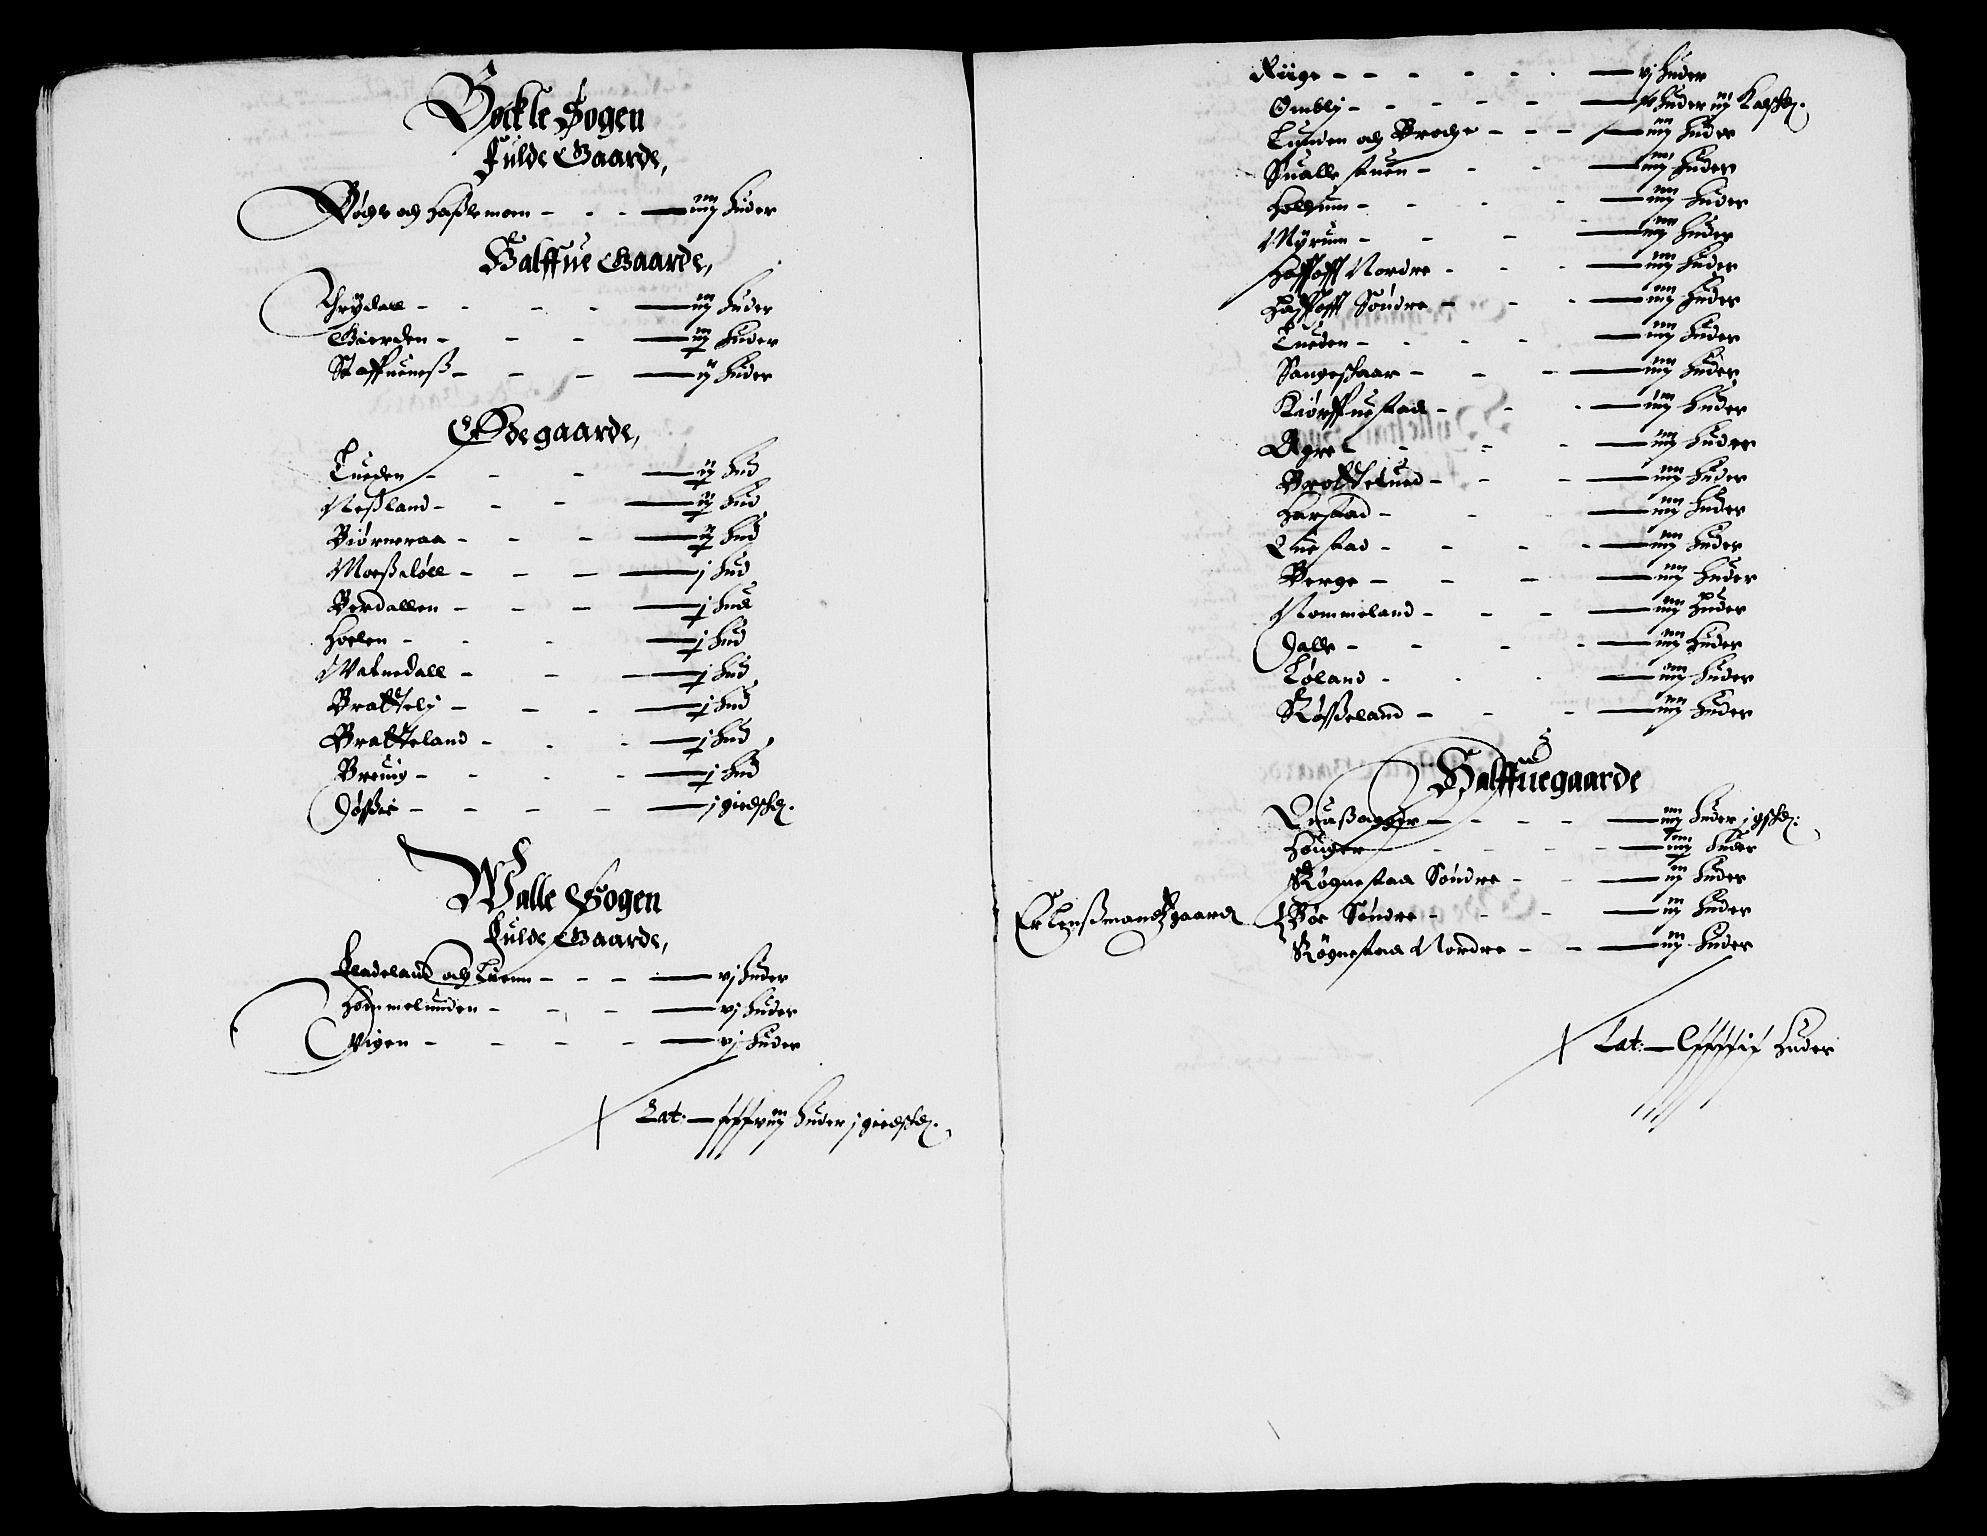 Bøckle Sogen
Fulde Gaarde,
Bøchle och Haszlemoen - - - iiij Huder
Halffue Gaarde,
Thrydall - - - - iij Huder
Gierden - - - iij Huder
Staffneness - - - ij Huder
Ødegaarde,
Lueden - - - ij Hud
Nessland - - - ij Hud
Biørneraa - - - ij Hud
Moesdøll - - - j Hud
Berdallen - - - j Hud
Hoslen - - - j Hud
Watnedall - - - j Hud
Bratteli - - - j Hud
Bratteland - - - j Hud
Breuig - - - j Hud
Jøszie - - - - j giedskd.
Walle Sogen
Fulde Gaarde,
Fladeland och Luenn - - - vj Huder
Hommelunden - - - vj Huder
Vigen - - - - vj Huder
Lat: huder j giedskd.
Riige - - - - - - vj Huder
Ombli - - - - - Huder iij Kalfskd.
Lunden och Brochе - - - iiij Huder
Suallestuen - - - iiij Huder
Holsum - - - - iiij Huder
Myrum - - - iiij Huder
Hoffoff Nordre - - - iiij Huder
Hoffoff Søndre - - - iiij Huder
Lueden - - - - iiij Huder
Sangeskaar - - - iiij Huder
Kiørffuestad - - - iiij Huder
Agre - - - iiij Huder
Brottelund - - - iiij Huder
Harstad - - - iiij Huder
Questad - - - - iiij Huder
Berge - - - iiij Huder
Nommeland - - - iiij Huder
Dalle - - - - iiij Huder
Løland - - - iiij Huder
Røszeland - - - iiij Huder
Halffuegaarde
Quaszagger - - - - iiij Huder j gskd:
Houger - - - - iiij Huder
Røgnestad Søndre - - iij Huder
Er Lenszmandtz gaard Bøe Søndre - - - iij Huder
Røgnestad Nordre - - iij Huder
Lat: Huder